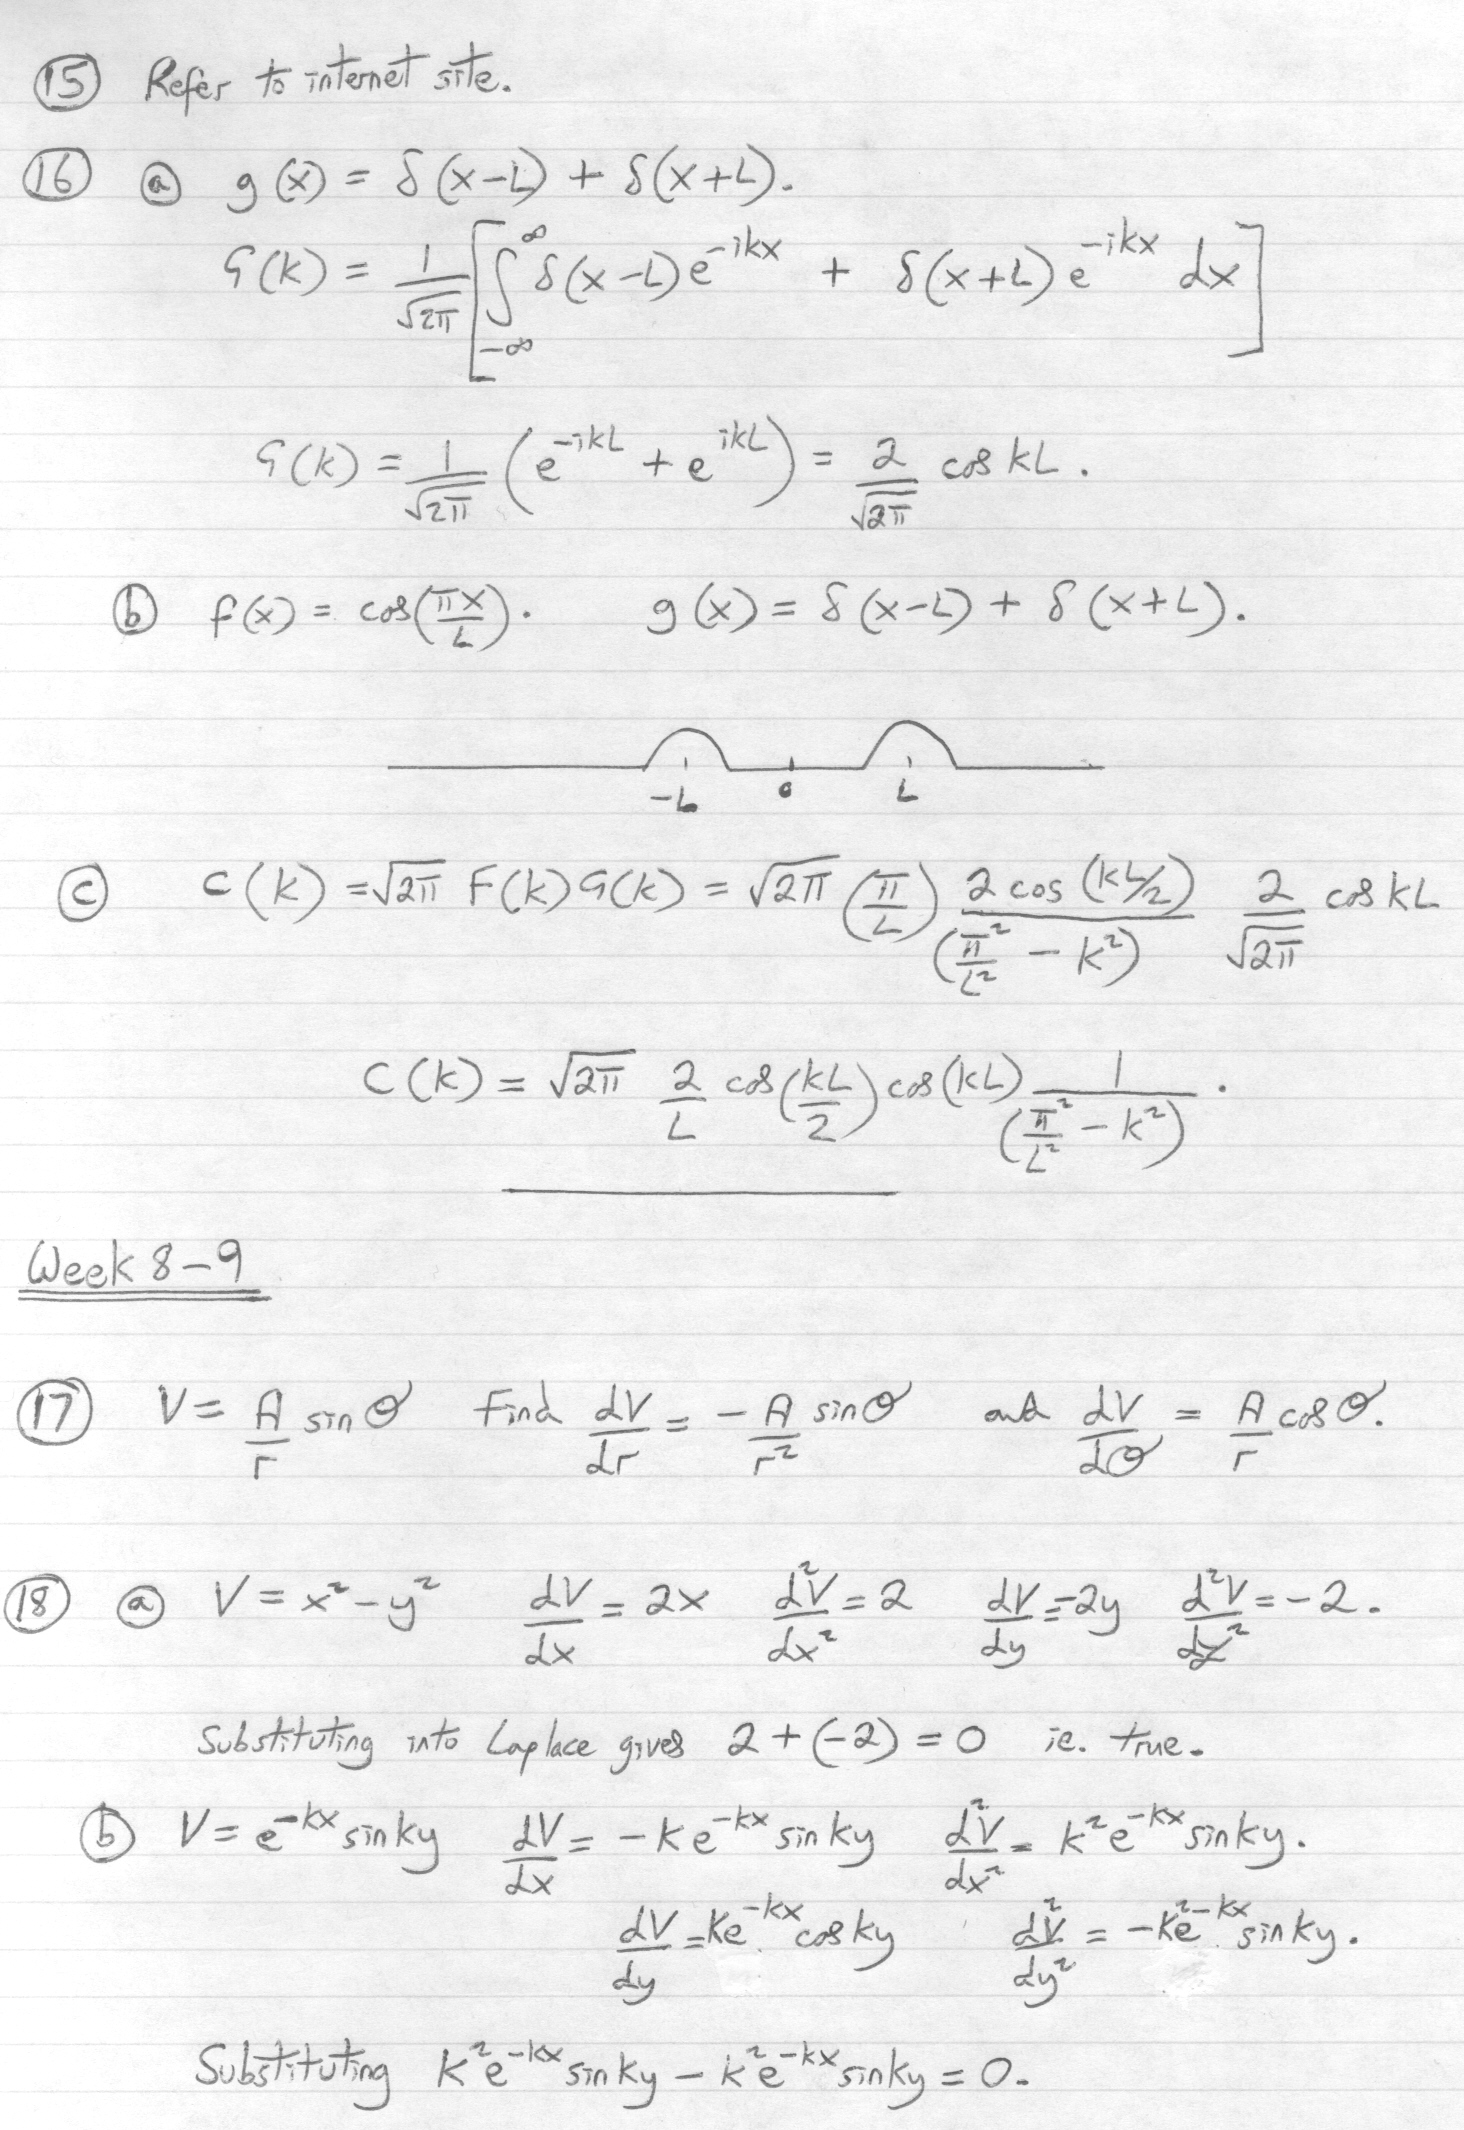 (15) Refer to internet site.
(16) (a) g(x) = δ(x-L) + δ(x+L).
G(k) = 1/√2π [ ∫_{-∞}^{∞} δ(x-L) e^{-ikx} + δ(x+L) e^{-ikx} dx ]
G(k) = 1/√2π ( e^{-ikL} + e^{ikL} ) = 2/√2π cos kL.
(b) f(x) = cos(πx/L). g(x) = δ(x-L) + δ(x+L).
-L 0 L
(c) C(k) = √2π F(k) G(k) = √2π (π/L) 2 cos(kL/2)/(π²/L² - k²) 2/√2π cos kL
C(k) = √2π 2/L cos(kL/2) cos(kL) 1/(π²/L² - k²).
Week 8-9
(17) V = A/r sin θ Find dV/dr = -A/r² sin θ and dV/dθ = A/r cos θ.
(18) (a) V = x² - y² dV/dx = 2x d²V/dx² = 2 dV/dy = -2y d²V/dy² = -2.
Substituting into Laplace gives 2 + (-2) = 0 ie. true.
(b) V = e^{-kx} sin ky dV/dx = -k e^{-kx} sin ky d²V/dx² = k² e^{-kx} sin ky.
dV/dy = k e^{-kx} cos ky d²V/dy² = -k² e^{-kx} sin ky.
Substituting k² e^{-kx} sin ky - k² e^{-kx} sin ky = 0.